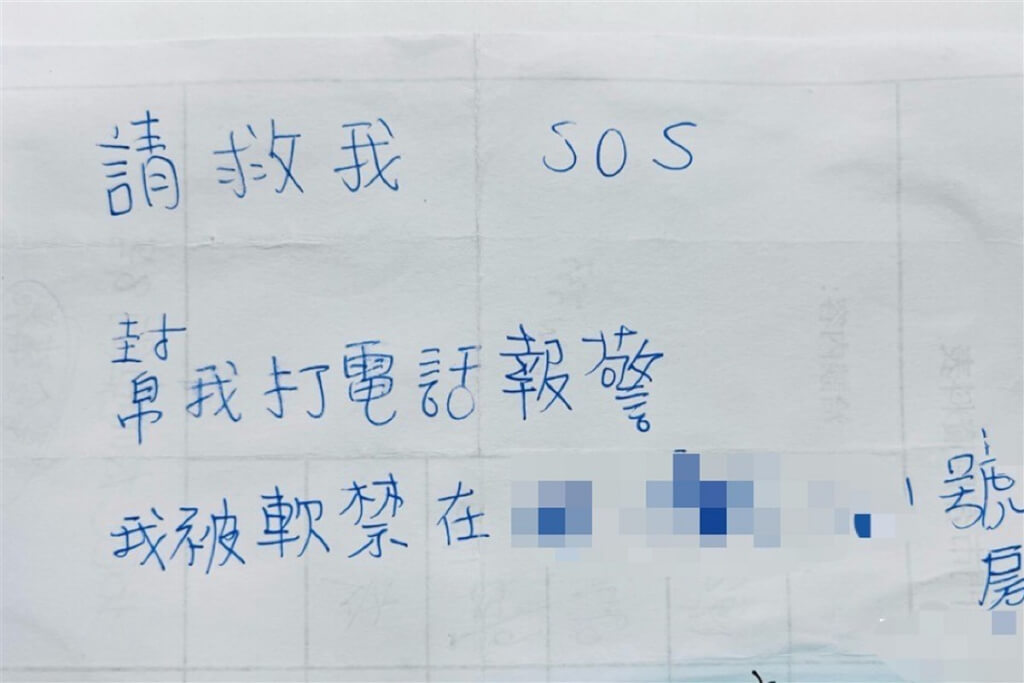 請救我 SOS
幫我打電話報警
我被軟禁在
號
房